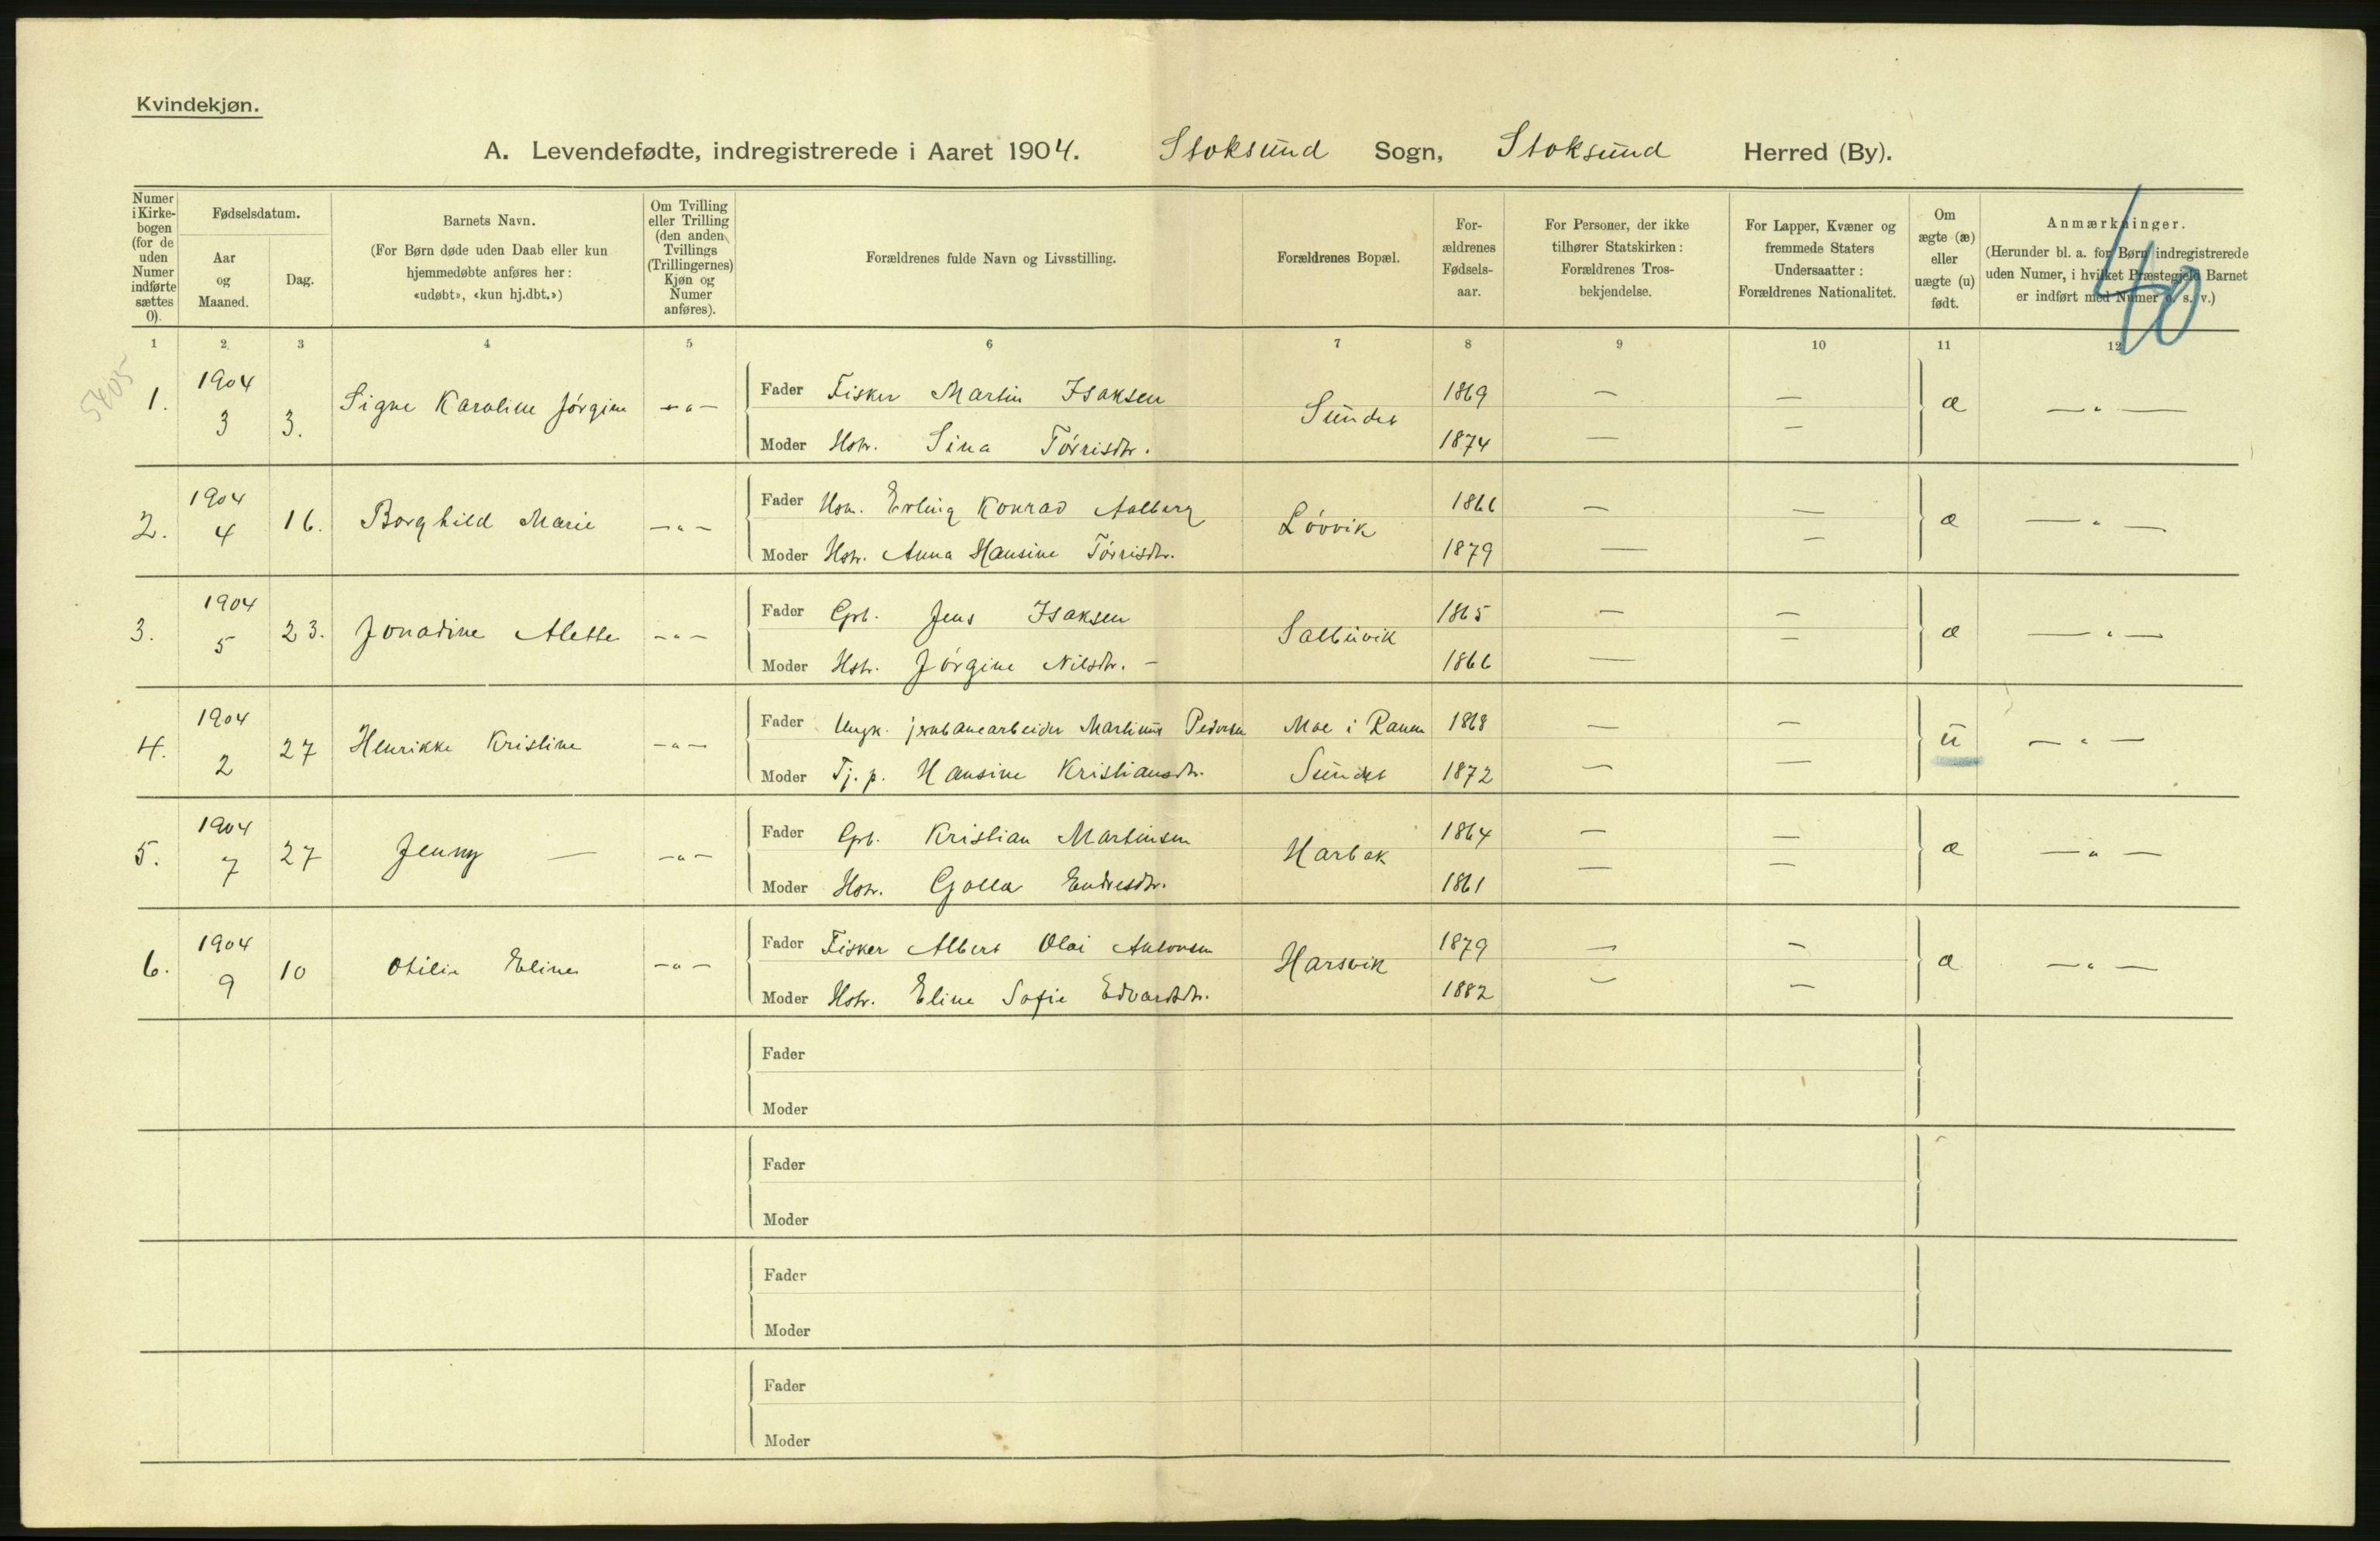 Kvindekjøn.
A. Levendefødte, indregistrerede i Aaret 1904. Stoksund Sogn, Stoksund Herred (By).
Numer i Kirkebogen (for de uden Numer indførte sættes 0).
Fødselsdatum.
Aar og Maaned.
Dag.
Barnets Navn.
(For Børn døde uden Daab eller kun
hjemmedøbte anføres her:
«udøbt», «kun hj.dbt.»)
Om Tvilling
eller Trilling
(den anden
Tvillings
(Trillingernes)
Kjøn og
Numer
anføres).
Forældrenes fulde Navn og Livsstilling.
Forældrenes Bopæl.
For-
ældrenes
Fødsels-
aar.
For Personer, der ikke
tilhører Statskirken:
Forældrenes Tros-
bekjendelse.
For Lapper, Kvæner og
fremmede Staters
Undersaatter:
Forældrenes Nationalitet.
Om
ægte (æ)
eller
uægte (u)
født.
Anmærkninger.
(Herunder bl. a. for Børn indregistrerede
uden Numer, i hvilket Præstegjeld Barnet
er indført med Numer o. s. v.)
40
1 2. 3 4 5 6 7 8 9 10 11 12
5405
1. 1904 3 3. Signe Karoline Jørgine -"-
Fader Fisker Martin Isaksen Sundet 1869 — — æ —"—
Moder Hstr. Sina Tørrisdtr. 1874 — —
2. 1904 4 16. Borghild Marie -"-
Fader Hsm. Erling Konrad Aalberg Løvvik 1866 — — æ —"—
Moder Hstr. Anna Hansine Tørrisdtr. 1879 — —
3. 1904 5 23. Jonadine Alette -"-
Fader Gprb. Jens Isaksen Salbuvik 1865 — — æ —"—
Moder Hstr. Jørgine Nilsdtr. - 1866 — —
4. 1904 2 27 Henrikke Kristine -"-
Fader Ungk. jernbanearbeider Martinus Pedersen Moe i Ranen 1868 — — u —"—
Moder Tj. p. Hansine Kristiansdtr. Sundet 1872 — —
5. 1904 7 27 Jenny — -"-
Fader Gprb. Kristian Martinsen Harbak 1864 — — æ —"—
Moder Hstr. Golla Endresdtr. 1861 — —
6. 1904 9 10 Otilie Eline -"-
Fader Fisker Albert Olai Antonsen Harsvik 1879 — — æ —"—
Moder Hstr. Eline Sofie Edvardsdtr. 1882 — —
Fader
Moder
Fader
Moder
Fader
Moder
Fader
Moder